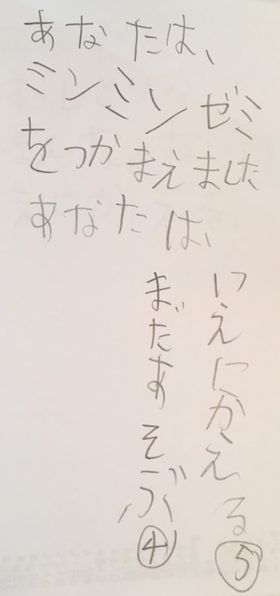 あなたは、
ミンミンゼミ
をつかまえました
あなたは、
いえにかえる⑤
まだあそぶ④